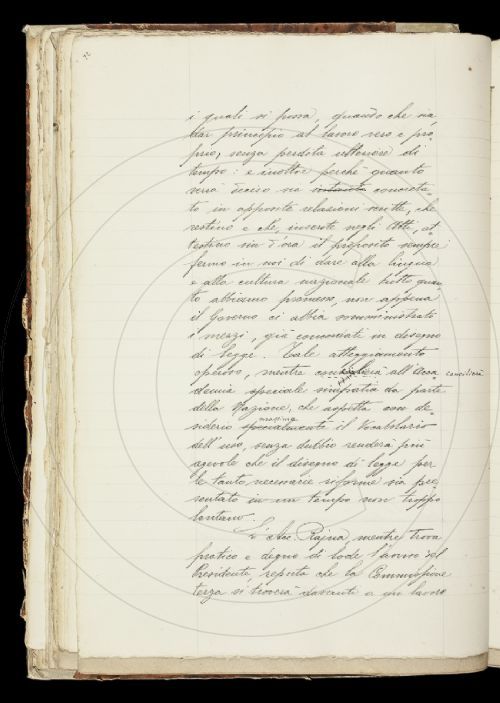 i quali si possa, quando che sia,
dar principio al lavoro vero e pro-
prio, senza perdita ulteriore di
tempo: e inoltre perchè quanto
verrà deciso sia concreta-
to in apposite relazioni scritte, che
restino e che, inserite negli Atti, at-
testino sin d'ora il proposito sempre
fermo in noi di dare alla lingua
e alla cultura nazionale tutto quan-
to abbiamo promesso, non appena
il Governo ci abbia somministrato
i mezzi, già concretati in disegno
di legge. Tale atteggiamento
operoso, mentre all'Acca-
conciliarà
demia speciale simpatia da parte
della Nazione, che aspetta con de-
massime
siderio specialmente il Vocabolario
dell'uso, senza dubbio renderà più
agevole che il disegno di legge per
le tanto necessarie riforme sia pre-
sentato in un tempo non troppo
lontano.
L'Acc. Rajna, mentre trova
pratico e degno di lode l'avviso del
Presidente, reputa che la Commissione
terza si troverà davanti a un lavoro